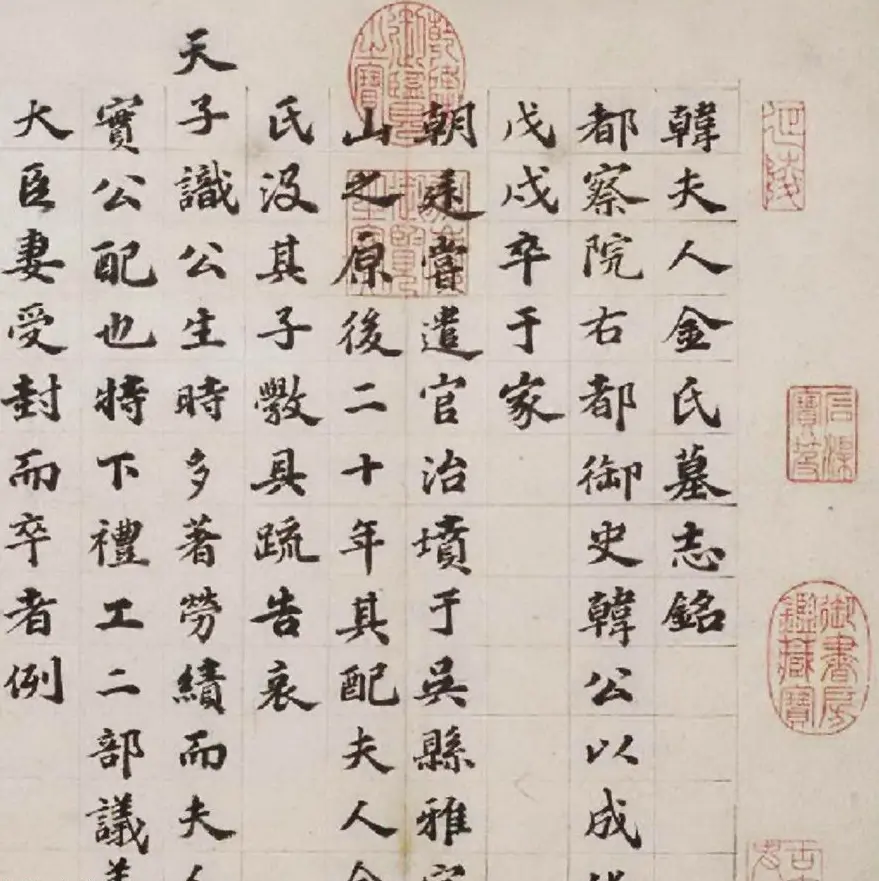 石渠寶笈
御書房鑑藏寶
韓夫人金氏墓志銘
都察院右都御史韓公以成
戊戌卒于家
朝廷嘗遣官治墳于吳縣雅
乾隆御覽之寶
山之原後二十年其配夫人
氏沒其子斆具疏告哀
天子識公生時多著勞績而夫人
實公配也特下禮工二部議
大臣妻受封而卒者例